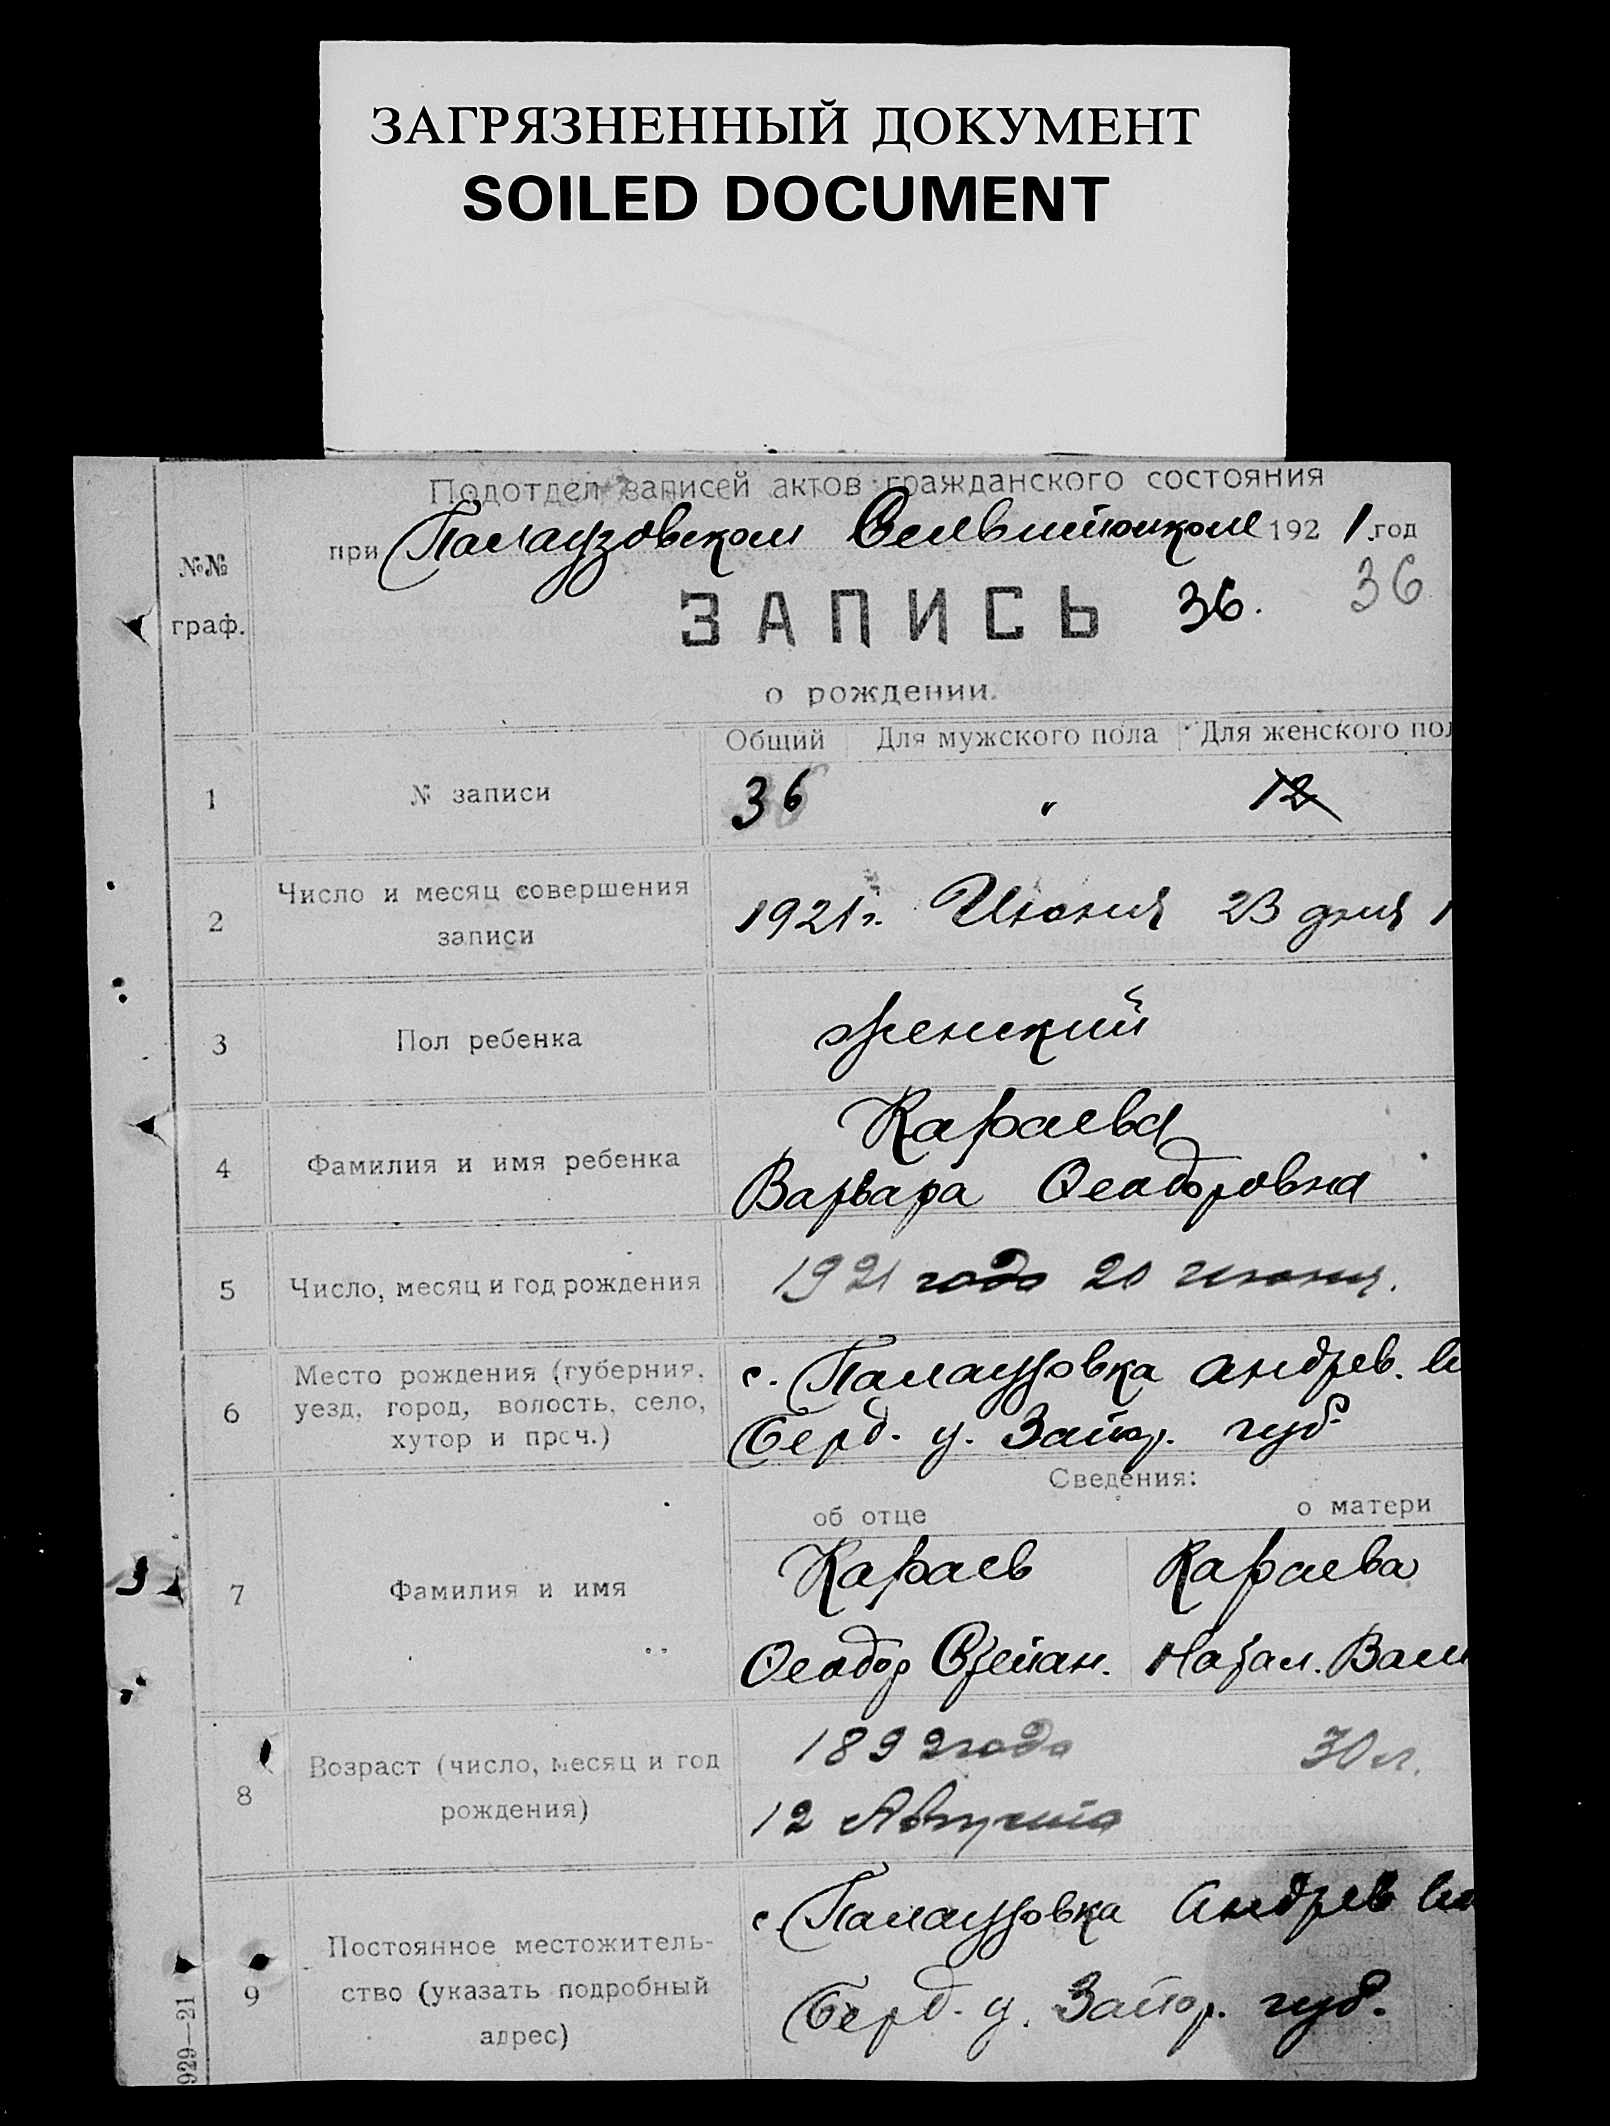 ЗАГРЯЗНЕННЫЙ ДОКУМЕНТ
SOILED DOCUMENT
Подотдел записей актов гражданского состояния
при Палаузовском 1921 год
№№ граф.
ЗАПИСЬ 36. 36
о рождении.
Общий Для мужского пола Для женского пол
1 № записи 36 " 12
2 Число и месяц совершения записи 1921 г. Июня 23 дня
3 Пол ребенка женский
4 Фамилия и имя ребенка Караева
Варвара Феодоровна
5 Число, месяц и год рождения 1921 года 20 июня.
6 Место рождения (губерния, уезд, город, волость, село, хутор и проч.) с. Палаузовка Андрев. во
Берд. у. Запор. губ.
Сведения:
об отце о матери
7 Фамилия и имя Караев Караева
Феодор Степан. Натал. Васи
8 Возраст (число, месяц и год рождения) 1892 года 30 л.
12 Августа
9 Постоянное местожитель-
ство (указать подробный
адрес)
с. Палаузовка Андрев во
Берд. у. Запор. губ.
929—21